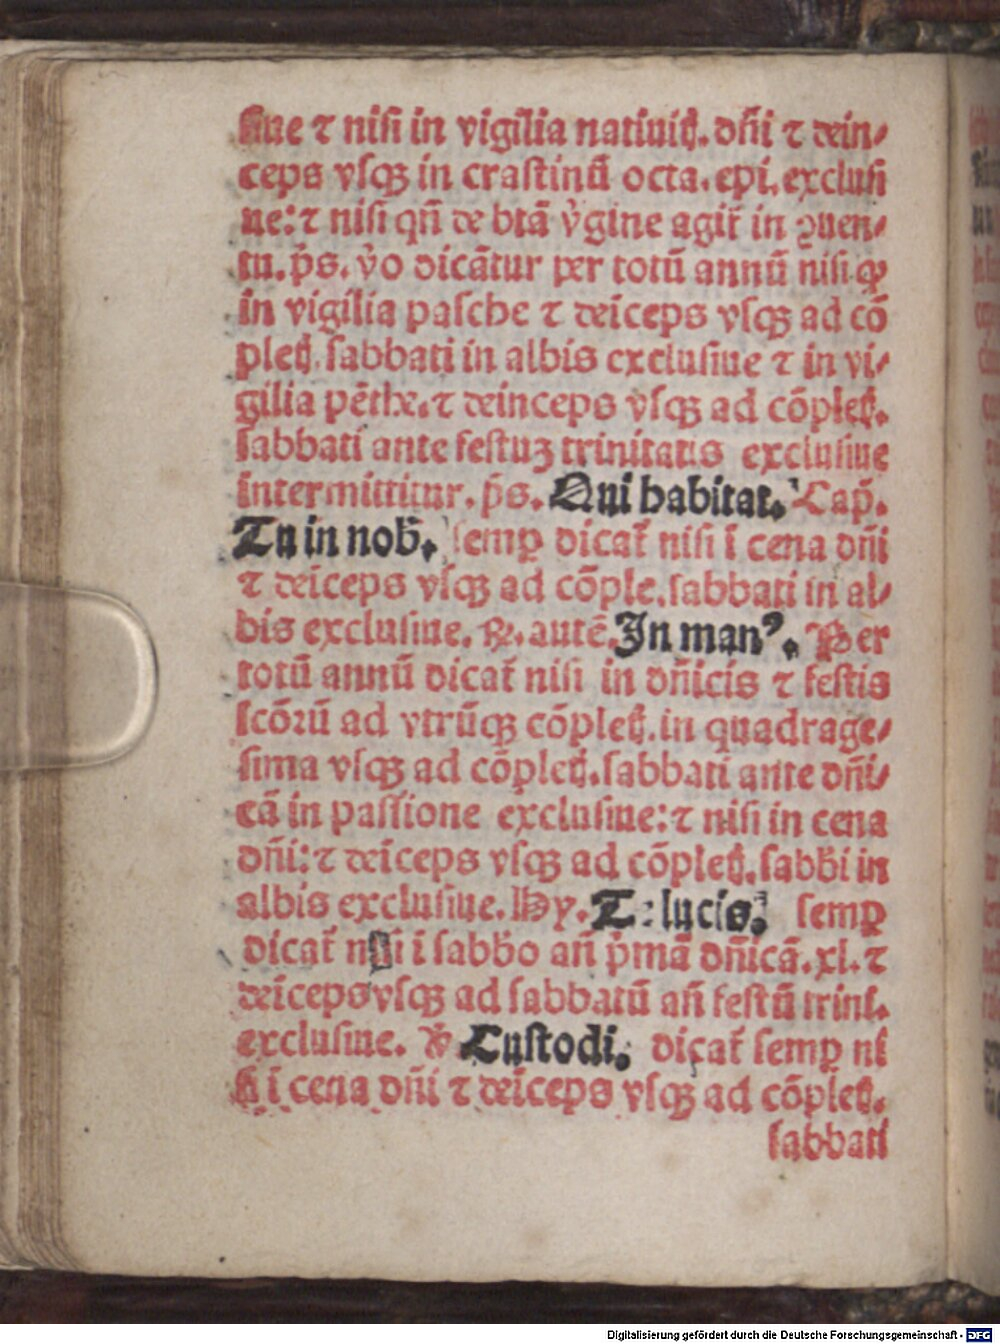 siue ⁊ nisi in vigilia natiuitꝭ. dñi ⁊ dein⸗
ceps vsqꝫ in crastinū octa. epi. exclusi
ue: ⁊ nisi qñ de btā v̓gine agit̃ in ꝯuen⸗
tu. p̃s. v̓o dicātur per totū annū nisi ꝙ
in vigilia pasche ⁊ deīceps vsqꝫ ad cō
pletꝭ. sabbati in albis exclusiue ⁊ in vi⸗
gilia pēthe. ⁊ deinceps v̓sqꝫ ad cōpletꝭ.
sabbati ante festuꝫ trinitatis exclusiue
intermittitur. p̃s. Qui habitat. Cap̃.
Tu in nob̃. semꝑ dicat̃ nisi ī cena dñi
⁊ deīceps vsqꝫ ad cōple. sabbati in al⸗
bis exclusiue. ℞. autē. In manꝰ. Per
totū annū dicat̃ nisi in dñicis ⁊ festis
scōrū ad vtrūqꝫ cōpletꝭ. in quadrage⸗
sima vsqꝫ ad cōpletꝭ. sabbati ante dñi⸗
cā in passione exclusiue: ⁊ nisi in cena
dñi: ⁊ deīceps vsqꝫ ad cōpletꝭ. sabb̃i in
albis exclusiue. Hy. Te lucis. semꝑ
dicat̃ nisi ī sabb̃o añ p̃mā dñicā. xl. ⁊
deīceps vsqꝫ ad sabbatū añ festū trinī.
exclusiue. ℣ Custodi. dicat̃ semꝑ ni
si ī cena dñi ⁊ deīceps vsqꝫ ad cōpletꝭ.
sabbati
Digitalisierung gefördert durch die Deutsche Forschungsgemeinschaft - DFG